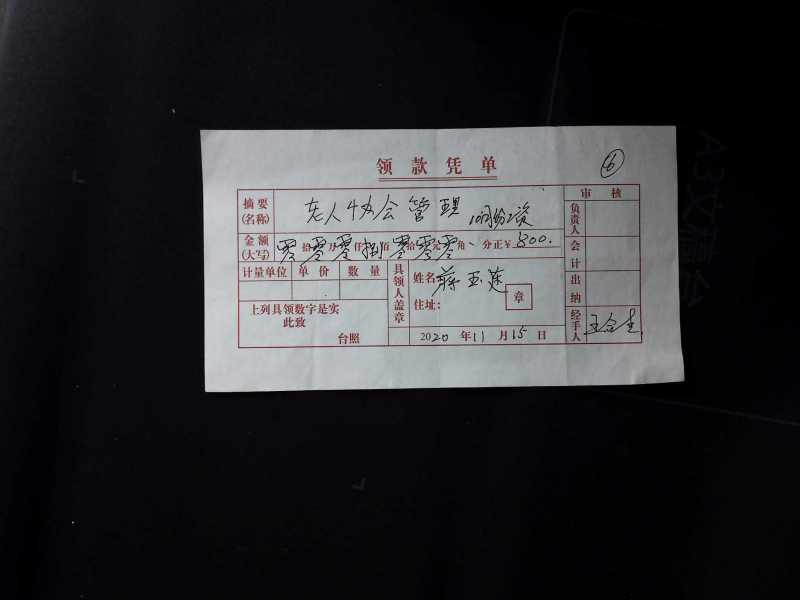 领款凭单
⑥
摘要(名称) 老人协会管理 10月份工资
金额(大写) 零拾零万零仟捌佰零拾零元零角 分正￥800.
计量单位 单价 数量
上列具领数字是实
此致
台照
具领人盖章
姓名: 蒋玉莲
住址:
章
2020年11月15日
审核
负责人
会计
出纳
经手人 王全生
A3文稿台